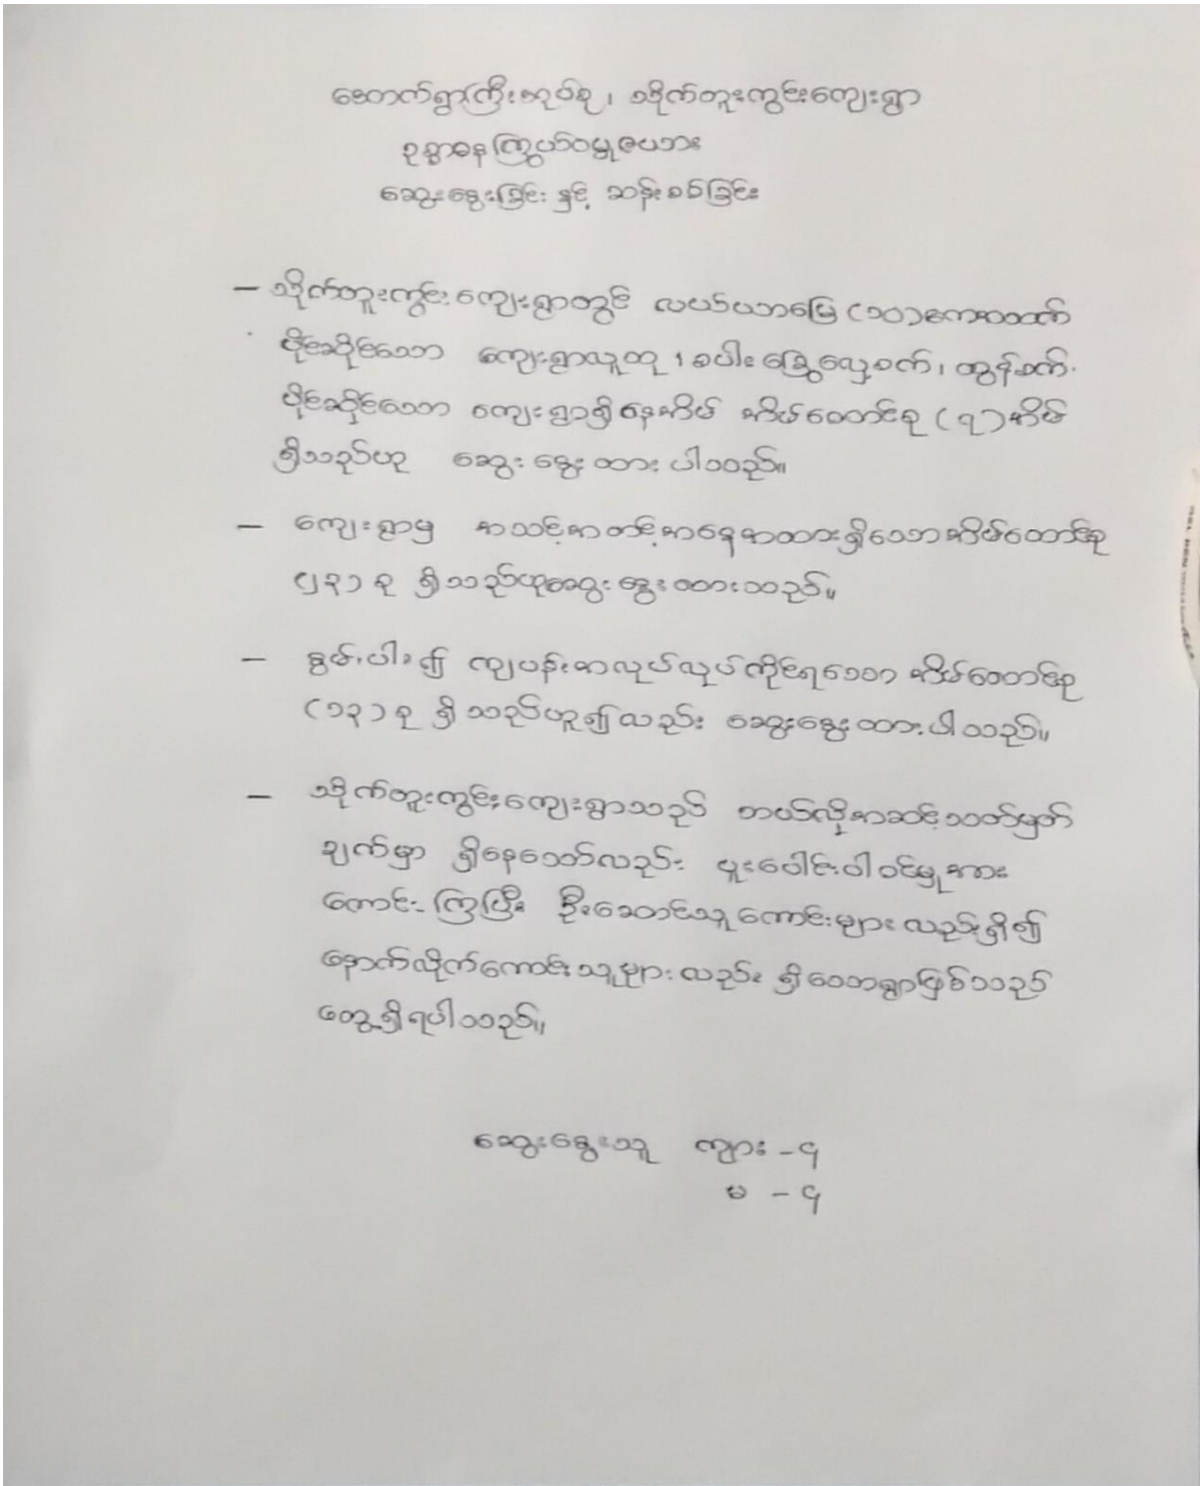 အောက်ရွာကြီးအုပ်စု၊ သိုက်တူးကွင်းကျေးရွာ
ဥစ္စာဓနကြွယ်ဝမှုဇယား
ဆွေးနွေးခြင်း နှင့် ဆန်းစစ်ခြင်း
– သိုက်တူးကွင်းကျေးရွာတွင် လယ်ယာမြေ (၁၀)ဧကအထက်
ပိုင်ဆိုင်သော ကျေးရွာလူထု ၊ စပါးခြွေလှေ့စက်၊ ထွန်စက်
ပိုင်ဆိုင်သော ကျေးရွာရှိနေအိမ် အိမ်ထောင်စု (၇)အိမ်
ရှိသည်ဟု ဆွေးနွေးထားပါသည်။
– ကျေးရွာမှ အသင့်အတင့်အနေအထားရှိသောအိမ်ထောင်စု
(၂၃) စု ရှိသည်ဟုဆွေးနွေးထားသည်။
– နွမ်းပါး၍ ကျပန်းအလုပ်လုပ်ကိုင်ရသော အိမ်ထောင်စု
(၁၃) စု ရှိသည်ဟူ၍လည်း ဆွေးနွေးထားပါသည်။
– သိုက်တူးကွင်းကျေးရွာသည် ဘယ်လိုအဆင့်သတ်မှတ်
ချက်မှာ ရှိနေသော်လည်း ပူးပေါင်းပါဝင်မှုအား
ကောင်းကြပြီး ဦးဆောင်သူကောင်းများလည်းရှိ၍
နောက်လိုက်ကောင်းသူများလည်း ရှိသောရွာဖြစ်သည်
တွေ့ရှိရပါသည်။
ဆွေးနွေးသူ ကျား - ၄
မ - ၄